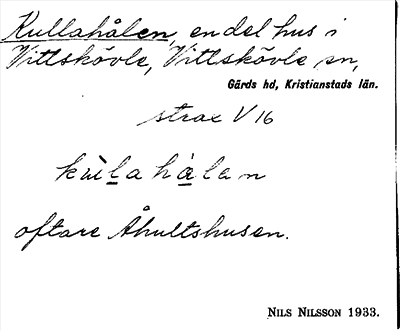 Kullahålen, en del hus i
Vittskövle, Vittskövle sn,
Gärds hd, Kristianstads län.
strax V 16
kùlahàlen
oftare Åhultshusen.
NILS NILSSON 1933.